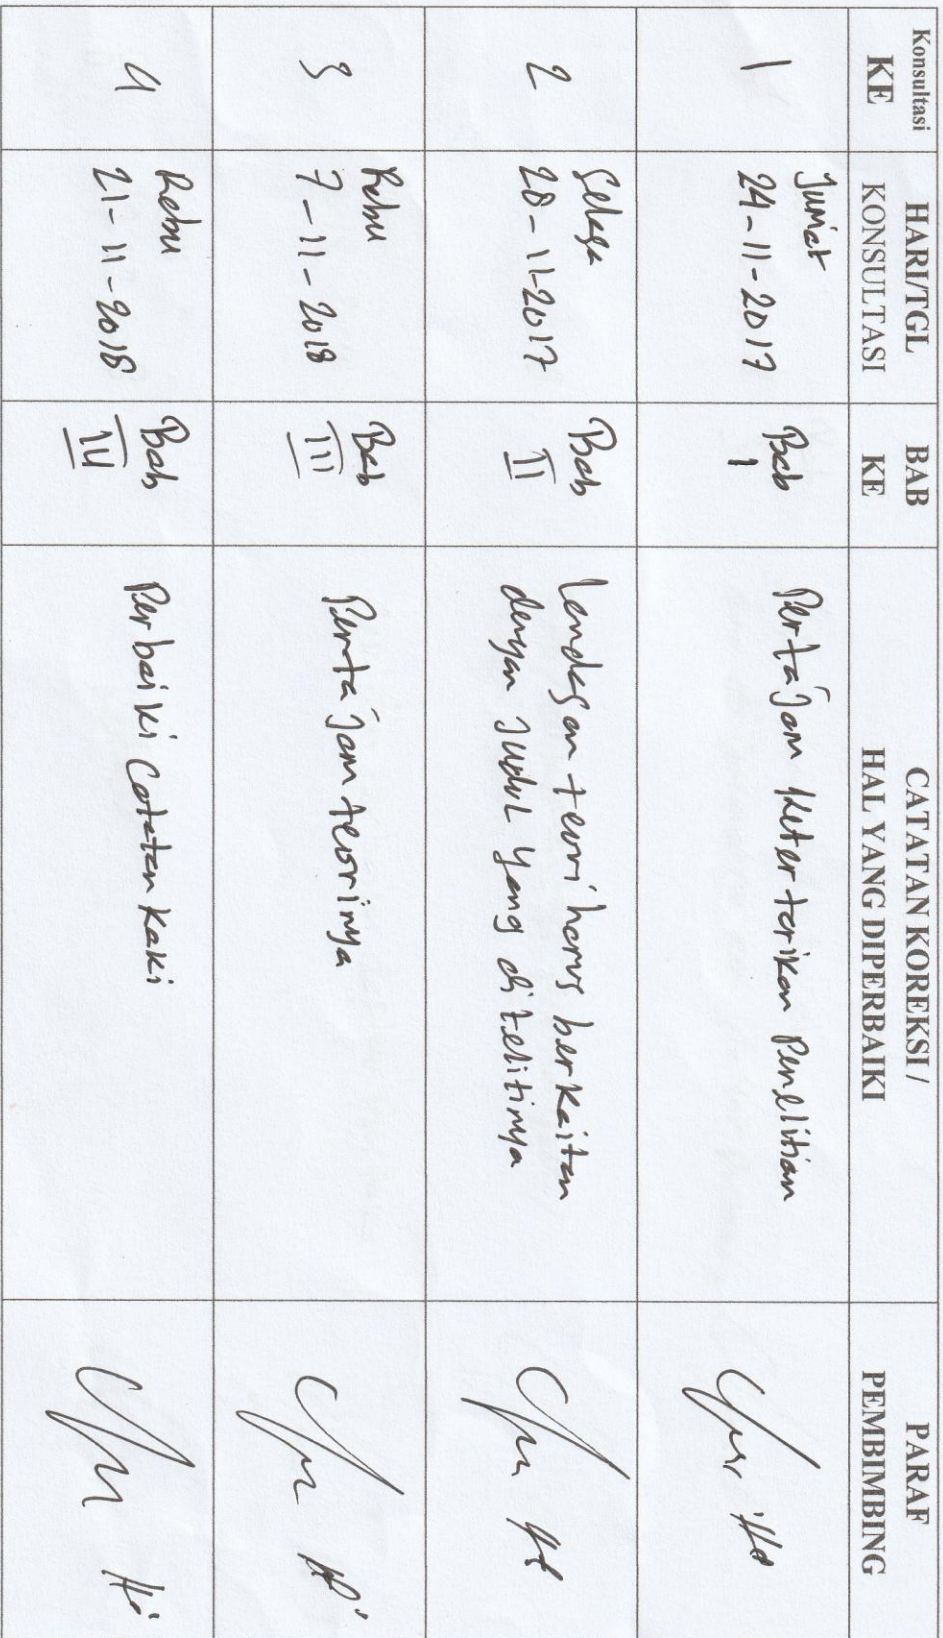 Konsultasi
KE
HARI/TGL
KONSULTASI
BAB
KE
CATATAN KOREKSI /
HAL YANG DIPERBAIKI
PARAF
PEMBIMBING
1
Jumat
24-11-2017
Bab
1
Pertajam Ketertarikan Penelitian
2
Selasa
28-11-2017
Bab
II
Landasan teori harus berkaitan
dengan Judul yang ditelitinya
3
Rebu
7-11-2018
Bab
III
Pertajam teorinya
4
Rebu
21-11-2018
Bab
IV
Perbaiki Catatan Kaki